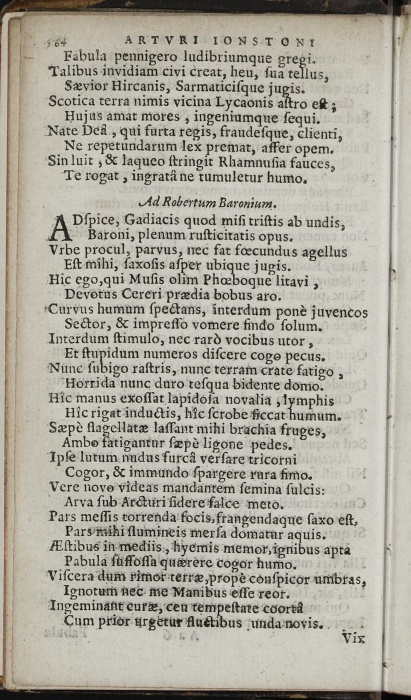 564 ARTVRI IONSTONI
Fabula pennigero ludibriumque gregi.
Talibus invidiam civi creat, heu, sua tellus,
Sævior Hircanis, Sarmaticisque jugis.
Scotica terra nimis vicina Lycaonis astro est;
Hujus amat mores, ingeniumque sequi.
Nate Deâ, qui furta regis, fraudesque, clienti,
Ne repetundarum lex premat, affer opem.
Sin luit, & laqueo stringit Rhamnusia fauces,
Te rogat, ingratâ ne tumuletur humo.
Ad Robertum Baronium.
ADspice, Gadiacis quod misi tristis ab undis,
Baroni, plenum rusticitatis opus.
Vrbe procul, parvus, nec fat fœcundus agellus
Est mihi, saxosis asper ubique jugis.
Hic ego, qui Musis olim Phœboque litavi,
Devotus Cereri prædia bobus aro.
Curvus humum spectans, interdum ponè juvencos
Sector, & impresso vomere findo solum.
Interdum stimulo, nec rarò vocibus utor,
Et stupidum numeros discere cogo pecus.
Nunc subigo rastris, nunc terram crate fatigo,
Horrida nunc duro tesqua bidente domo.
Hîc manus exossat lapidosa novalia, lymphis
Hîc rigat inductis, hîc scrobe siccat humum.
Sæpè flagellatæ lassant mihi brachia fruges,
Ambo fatigantur sæpè ligone pedes.
Ipse lutum nudus furcâ versare tricorni
Cogor, & immundo spargere rura fimo.
Vere novo videas mandantem semina sulcis:
Arva sub Arcturi sidere falce meto.
Pars messis torrenda focis, frangendaque saxo est,
Pars mihi flumineis mersa domatur aquis.
Æstibus in mediis, hyemis memor, ignibus apta
Pabula suffossa quærere cogor humo.
Viscera dum rimor terræ, propè conspicor umbras,
Ignotum nec me Manibus esse reor.
Ingeminant curæ, ceu tempestate coortâ
Cum prior urgetur fluctibus unda novis.
Vix